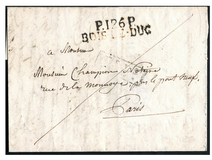 P.126.P.
BOIS-LE-DUC
a Monsieur
Monsieur Champion
rue de la monnoye près le pont neuf
Paris